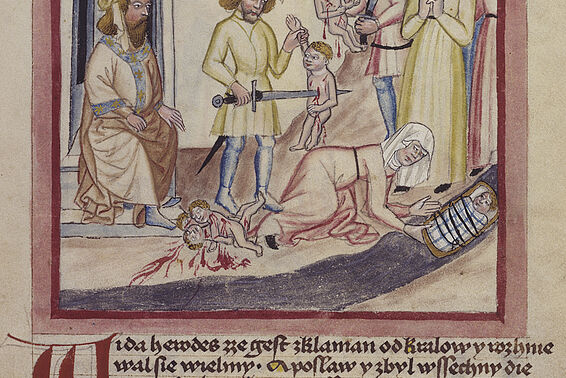 Wida herodes zze gest zklaman od kralow y rozhnie
wal sie wielmy · A poslaw y zbyl wssechny die